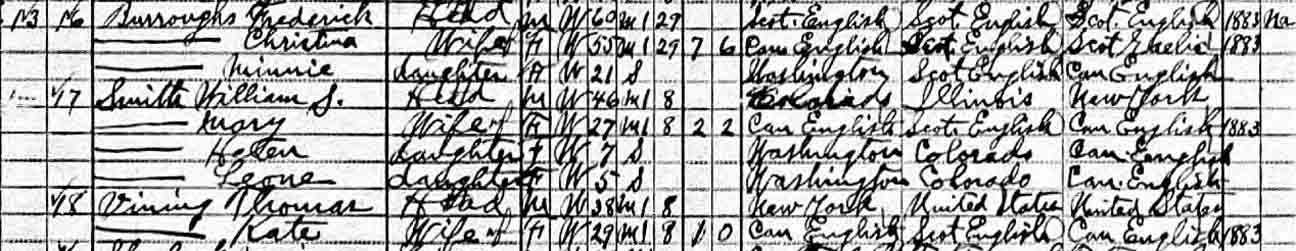 73 76 Burroughs Frederick Head M W 60 M1 29 Scot. English Scot English Scot. English 1883 Na
Christina Wife of F W 55 M1 29 7 6 Can English Scot English Scot Gaelic 1883
Minnie daughter F W 21 S Washington Scot English Can English
77 Smith William S. Head M W 46 M1 8 Colorado Illinois New York
Mary Wife of F W 27 M1 8 2 2 Can English Scot. English Can English 1883
Helen daughter F W 7 S Washington Colorado Can English
Leone daughter F W 5 S Washington Colorado Can. English
78 Vining Thomas Head M W 38 M1 8 New York United States United States
Kate Wife of F W 29 M1 8 1 0 Can English Scot English Can English 1883